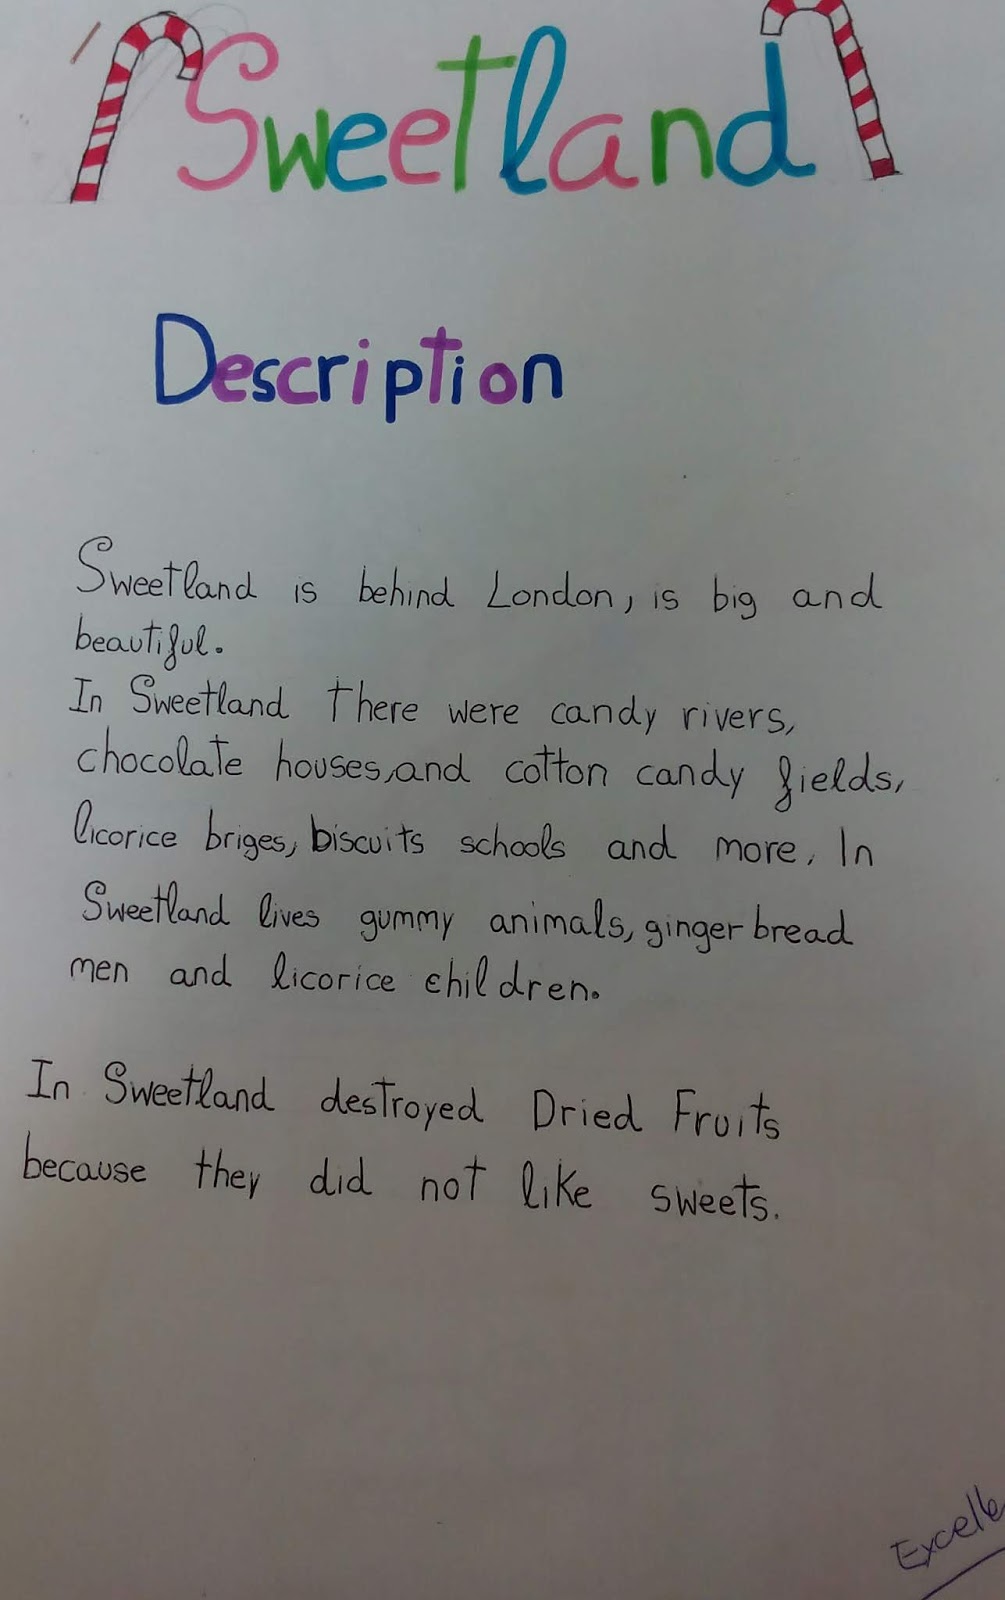 Sweetland
Description
Sweetland is behind London, is big and
beautiful.
In Sweetland there were candy rivers,
chocolate houses, and cotton candy fields,
licorice briges, biscuits schools and more. In
Sweetland lives gummy animals, ginger bread
men and licorice children.
In Sweetland destroyed Dried Fruits
because they did not like sweets.
Excelle